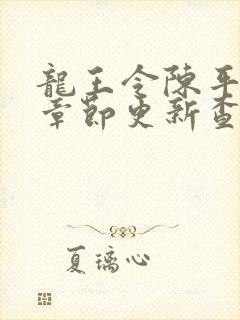 龍王令陳平
章節更新查
夏璃心